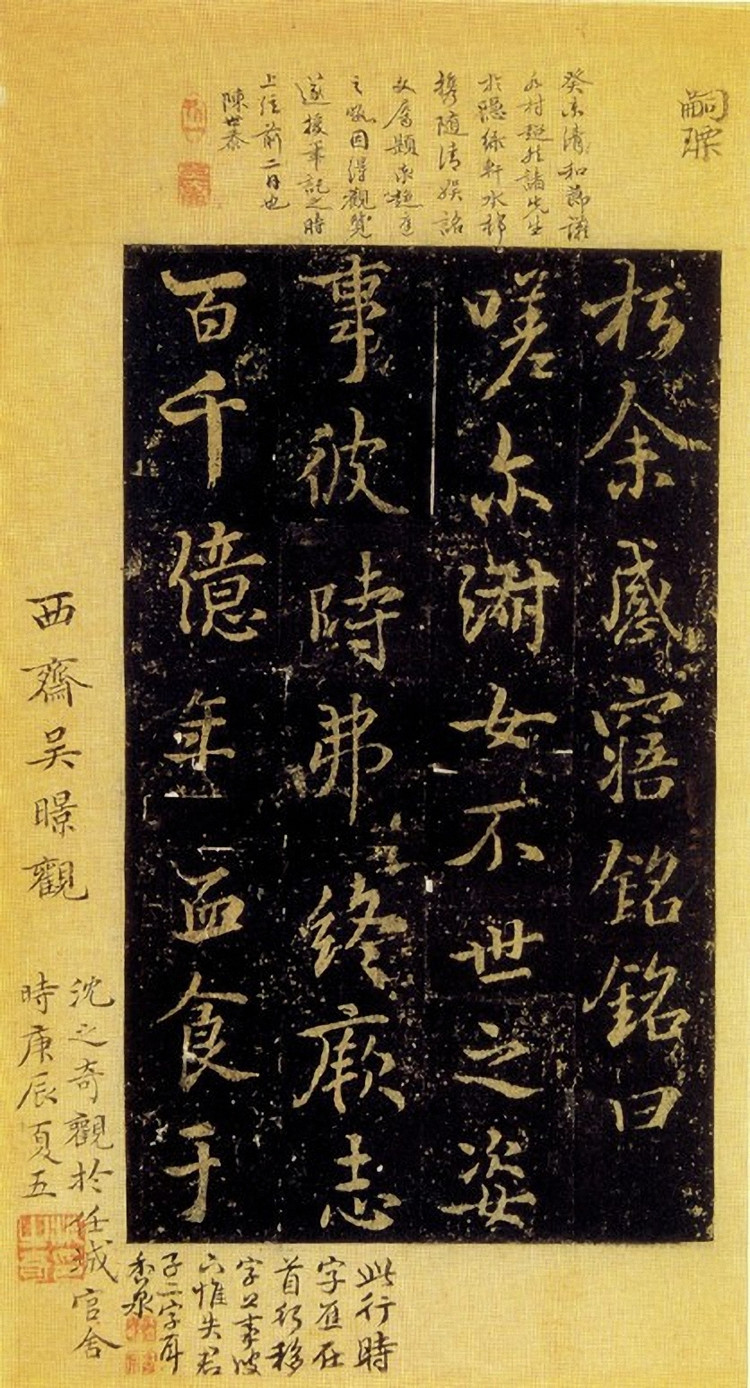 嗣瑮
癸未清和節讌
村 諸先生
於隱綠軒水村
攜隨清娛誌
文屬題 趨庭
之暇因得觀覽
遂援筆記之時
上浣前二日也
陳世泰
於余感寤銘銘曰
嗟尔淑女不世之姿
事彼時弗終厥志
百千億年血食于
此行時
字應在
首行移
字上事彼
下惟失君
子二字耳
香泉
西齋吳暻觀
沈之奇觀於任城官舍
時庚辰夏五